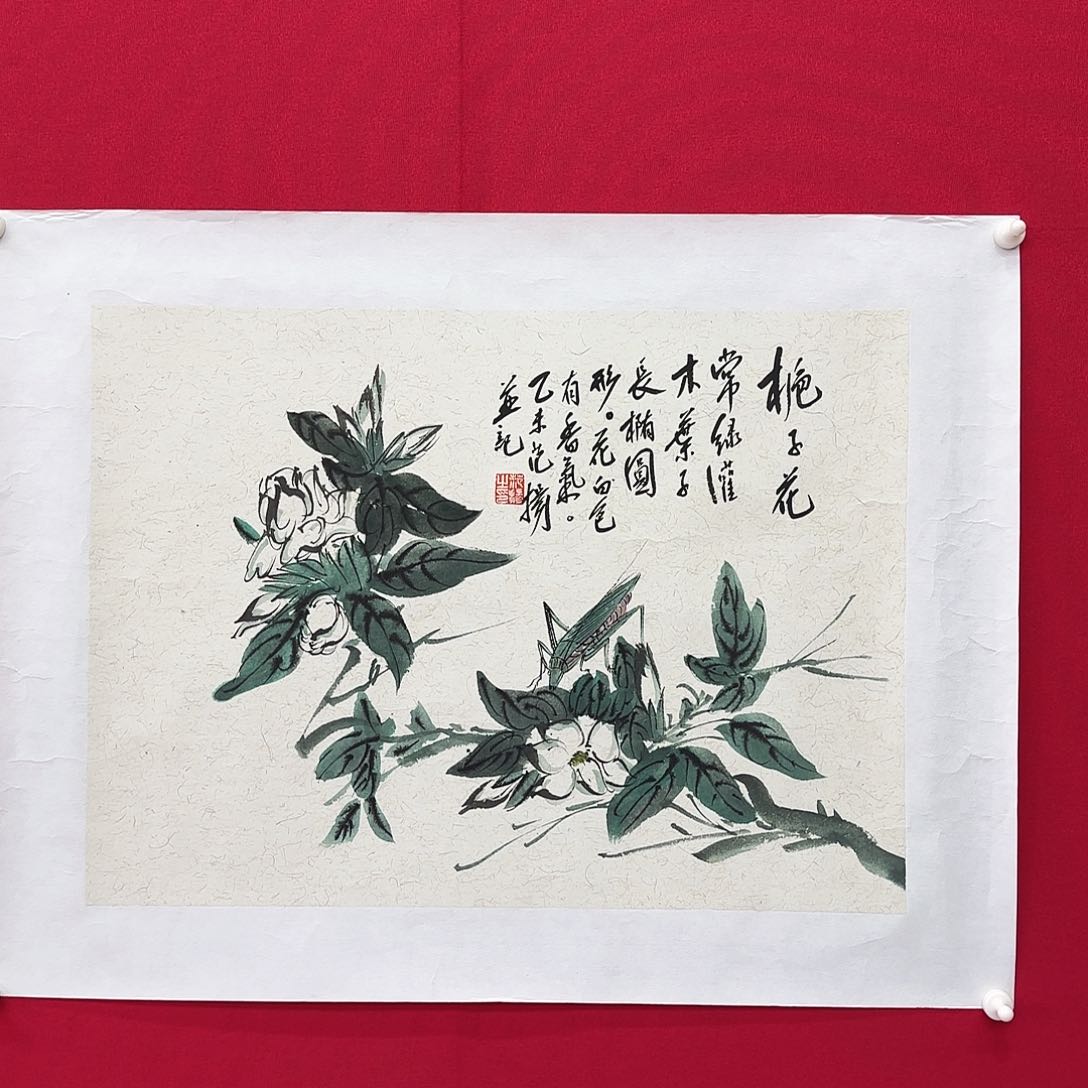 栀子花
常绿灌
木葉子
長橢圓
形。花白色
有香氣。
乙未范
並記